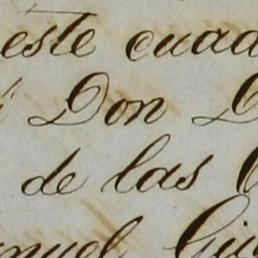 este cuad
Don D
de las C
nuel Gu